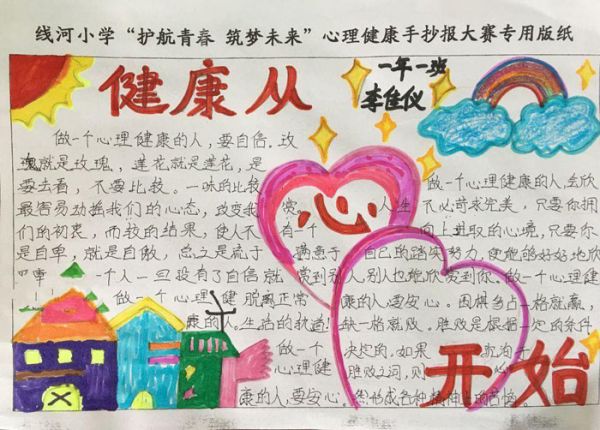 线河小学“护航青春 筑梦未来”心理健康手抄报大赛专用版纸
健康从
一年一班
李佳仪
做一个心理健康的人,要自信。玫
瑰就是玫瑰,莲花就是莲花,是
要去看,不要比较。一味的比较
最容易动摇我们的心态,改变我
们的初衷,而较的结果,使人不
是自卑,就是自傲,总之是流于
一个人一旦没有了自信就
做一个心理健康的人,会欣
赏 人生 不必苛求完美,只要你拥
有一个 向上进取的心境,只要你
满意于 自己的踏实努力,使能够好好地欣
赏到别人,别人也能欣赏到你。做一个心理健
做一个心理健 脱离正常 康的人,要安心。围棋多占一格就赢,
康的人 生活的轨道! 缺一格就败。胜败是根据一定的条件
做一个 决定的,如果
心理健 胜败之间,则
康的人,要安心。
开始